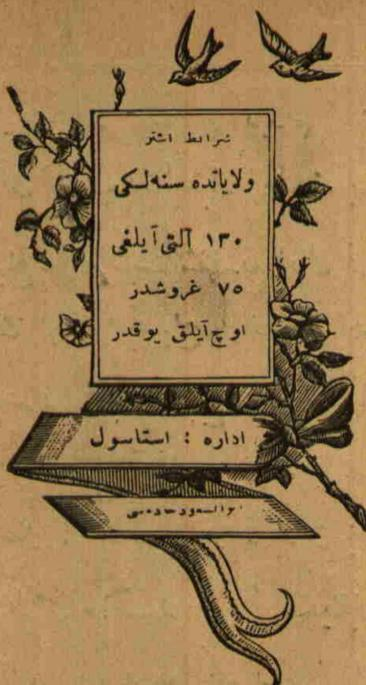 شرائط اشترا
ولایاتده سنه‌لکی
۱۳۰ آلتی آیلغی
۷۵ غروشدر
اوچ آیلق یوقدر
اداره : استانبول
ابوالسعود جاده‌سی